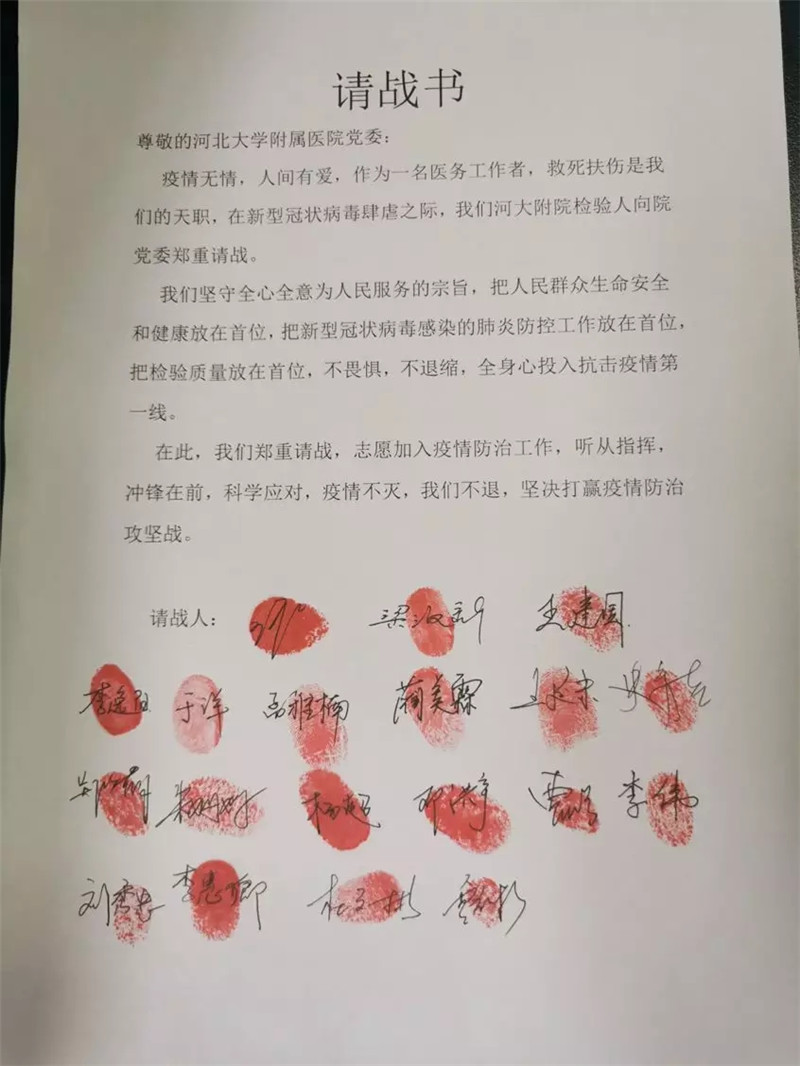 请战书
尊敬的河北大学附属医院党委：
疫情无情，人间有爱，作为一名医务工作者，救死扶伤是我
们的天职，在新型冠状病毒肆虐之际，我们河大附院检验人向院
党委郑重请战。
我们坚守全心全意为人民服务的宗旨，把人民群众生命安全
和健康放在首位，把新型冠状病毒感染的肺炎防控工作放在首位，
把检验质量放在首位，不畏惧，不退缩，全身心投入抗击疫情第
一线。
在此，我们郑重请战，志愿加入疫情防治工作，听从指挥，
冲锋在前，科学应对，疫情不灭，我们不退，坚决打赢疫情防治
攻坚战。
请战人： 王建国
于洋 高雅楠 蔺美霖
杨超 李伟